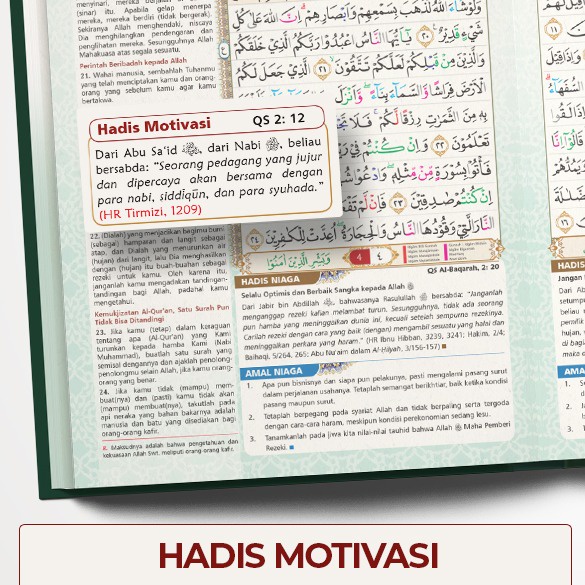 menyinari, mereka berjalan di bawah
(sinar) itu. Apabila gelap menerpa
mereka, mereka berdiri (tidak bergerak).
Sekiranya Allah menghendaki, niscaya
Dia menghilangkan pendengaran dan
penglihatan mereka. Sesungguhnya Allah
Mahakuasa atas segala sesuatu.
Perintah Beribadah kepada Allah
21. Wahai manusia, sembahlah Tuhanmu
yang telah menciptakan kamu dan orang-
orang yang sebelum kamu agar kamu
bertakwa.
Hadis Motivasi QS 2: 12
Dari Abu Sa'id, dari Nabi ﷺ, beliau
bersabda: "Seorang pedagang yang jujur
dan dipercaya akan bersama dengan
para nabi, siddīqūn, dan para syuhada."
(HR Tirmizi, 1209)
22. (Dialah) yang menjadikan bagimu bumi
(sebagai) hamparan dan langit sebagai
atap, dan Dialah yang menurunkan air
(hujan) dari langit, lalu Dia menghasilkan
dengan (hujan) itu buah-buahan sebagai
rezeki untuk kamu. Oleh karena itu,
janganlah kamu mengadakan tandingan-
tandingan bagi Allah, padahal kamu
mengetahui.
Kemukjizatan Al-Qur'an, Satu Surah Pun
Tidak Bisa Ditandingi
23. Jika kamu (tetap) dalam keraguan
tentang apa (Al-Qur'an) yang Kami
turunkan kepada hamba Kami (Nabi
Muhammad), buatlah satu surah yang
semisal dengannya dan ajaklah penolong-
penolongmu selain Allah, jika kamu orang-
orang yang benar.
24. Jika kamu tidak (mampu) mem-
buat(nya) dan (pasti) kamu tidak akan
(mampu) membuat(nya), takutlah pada
api neraka yang bahan bakarnya adalah
manusia dan batu yang disediakan bagi
orang-orang kafir.
8. Maksudnya adalah bahwa pengetahuan dan
kekuasaan Allah Swt. meliputi orang-orang kafir.
وَلَوْ شَاءَ اللّٰهُ لَذَهَبَ بِسَمْعِهِمْ وَاَبْصَارِهِمْ اِنَّ اللّٰهَ عَلٰى كُلِّ
شَيْءٍ قَدِيْرٌ ٢٠ يٰٓاَيُّهَا النَّاسُ اعْبُدُوْا رَبَّكُمُ الَّذِيْ خَلَقَكُمْ
وَالَّذِيْنَ مِنْ قَبْلِكُمْ لَعَلَّكُمْ تَتَّقُوْنَ ٢١ الَّذِيْ جَعَلَ لَكُمُ
الْاَرْضَ فِرَاشًا وَّالسَّمَاءَ بِنَاءً وَّاَنْزَلَ
بِهٖ مِنَ الثَّمَرٰتِ رِزْقًا لَّكُمْ فَلَا تَجْ
تَعْلَمُوْنَ ٢٢ وَاِنْ كُنْتُمْ فِيْ رَ
فَأْتُوْا بِسُوْرَةٍ مِّنْ مِّثْلِهٖ وَادْعُوْا
اِنْ كُنْتُمْ صٰدِقِيْنَ ٢٣ فَاِنْ لَّمْ تَفْ
النَّارَ الَّتِيْ وَقُوْدُهَا النَّاسُ وَالْحِجَارَةُ اُعِدَّتْ لِلْكٰفِرِيْنَ ٢٤
وَبَشِّرِ الَّذِيْنَ اٰمَنُوْا
4 ٤
QS Al-Baqarah, 2: 20
HADIS NIAGA
Selalu Optimis dan Berbaik Sangka kepada Allah
Dari Jabir bin Abdillah, bahwasanya Rasulullah ﷺ bersabda: "Janganlah
menganggap rezeki kalian melambat turun. Sesungguhnya, tidak ada seorang
pun hamba yang meninggalkan dunia ini, kecuali setelah sempurna rezekinya.
Carilah rezeki dengan cara yang baik (dengan) mengambil sesuatu yang halal dan
meninggalkan perkara yang haram." (HR Ibnu Hibban, 3239, 3241; Hakim, 2/4;
Baihaqi, 5/264, 265; Abu Nu'aim dalam Al-Hilyah, 3/156-157)
AMAL NIAGA
1. Apa pun bisnisnya dan siapa pun pelakunya, pasti mengalami pasang surut
dalam perjalanan usahanya. Tetaplah semangat berikhtiar, baik ketika kondisi
pasang maupun surut.
2. Tetaplah berpegang pada syariat Allah dan tidak berpaling serta tergoda
dengan cara-cara haram, meskipun kondisi perekonomian sedang lesu.
3. Tanamkanlah pada jiwa kita nilai-nilai tauhid bahwa Allah Maha Pemberi
Rezeki.
HADIS
Jangan
AMA
1.
2.
3.
HADIS MOTIVASI